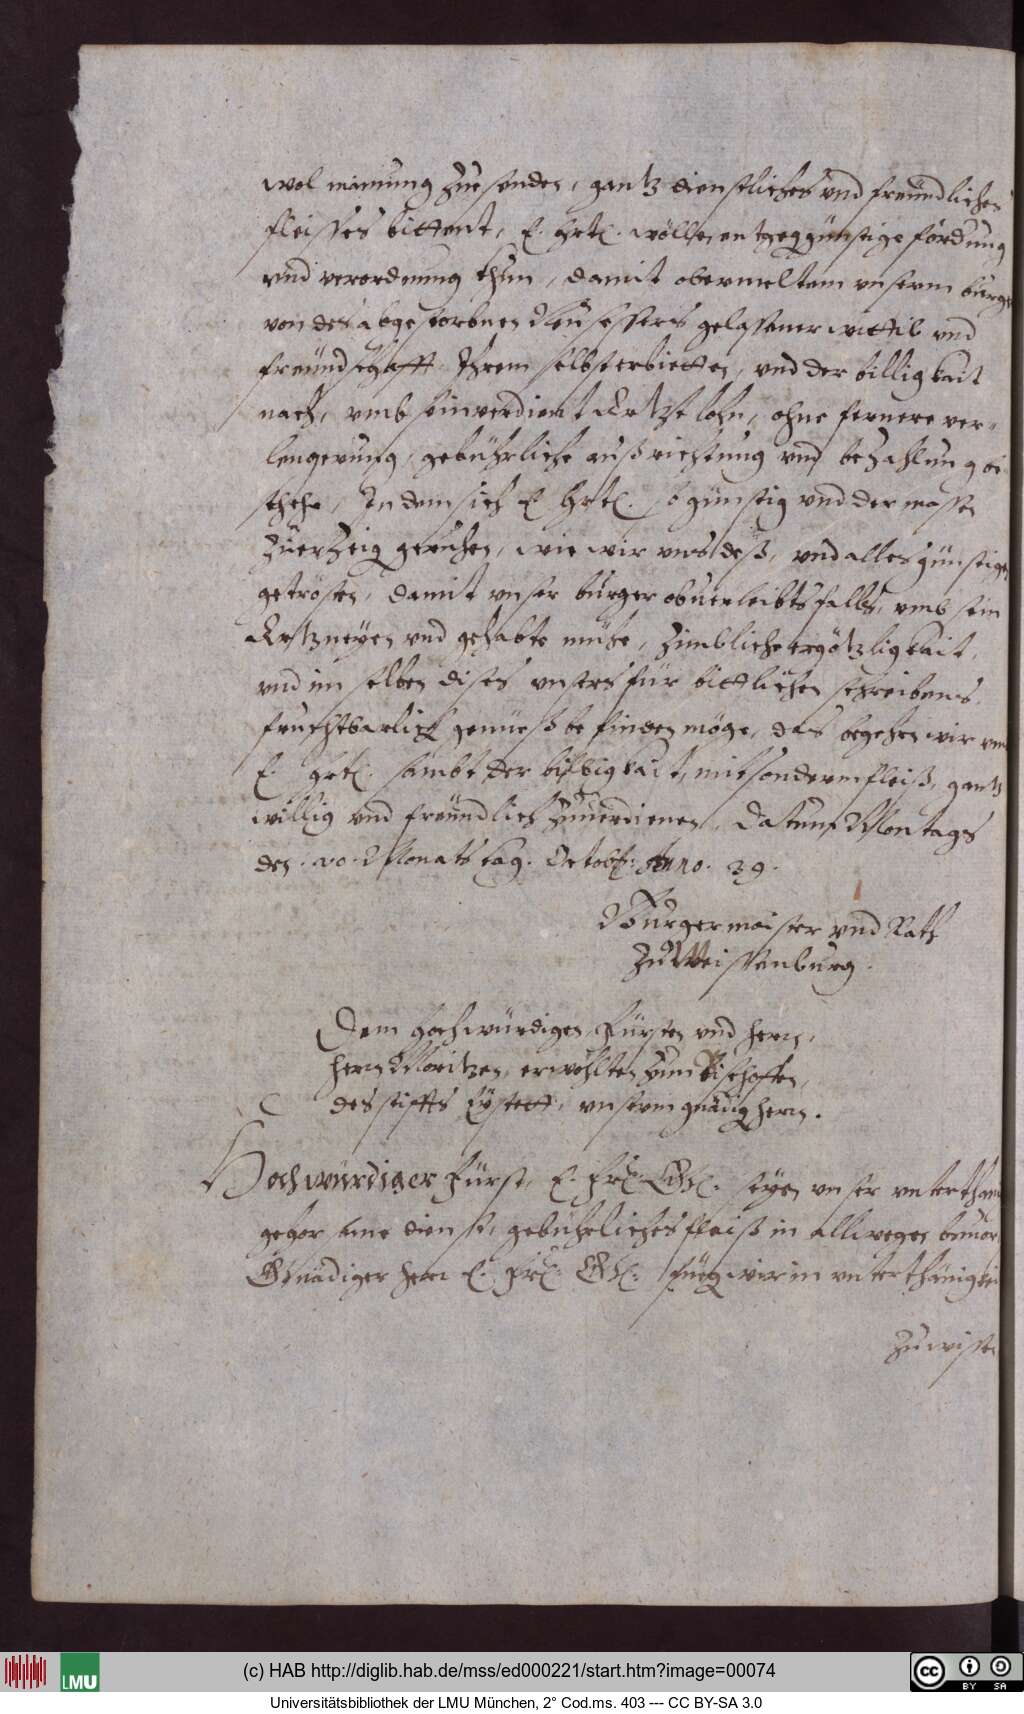 wol mainung zuesenden, gantz dienstliches vnd freündliches
fleisses bittent, E. hrl. wöllen entgegen günstige fordrung
vnd verordnung thun, damit obermeltem vnserm burger
von des abgestorbnen gelassner wittib vnd
freündtschafft Ihrem selbst erbietten, vnd der billigkait
nach, vmb sein verdient Artzt lohn, ohne fernere ver-
lengerung, gebührliche außrichtung vnd bezahlung be
schehe, In dem sich E. hrl. so günstig vnd der massen
zuerzeig geruhen, wie wir vns deß, vnd alles günstigen
getrösten, damit vnser burger obuerleibts falls, vmb sein
Artzneyen vnd gehabte mühe, zimbliche ergötzligkait,
vnd im selben dises vnsers für bittlichen schreibens
fruchtbarlich genüeß befinden möge, das begehen wir vmb
E. hrl. sambt der billigkait, mit sonderm fleiß, gantz
willig vnd freündlich zuuerdienen, Datum Montags
den Monats tag. Octob: Anno. 39.
Burgermaister vnd Rath
zu Weissenburg.
Dem hochwürdigen Fürsten vnd herrn,
herrn Moritzen, erwöhlten zum Bischoffen,
des stiffts Eystett, vnserm gnädig herrn.
Hochwürdiger Fürst, E. frl. Gn. seyen vnser vnterthänig
gehorsame dienst, gebührliches fleiß in allweges beuor
Gnädiger herr E. frl. Gn. füeg wir in vnterthänigkei
zu wissen
(c) HAB http://diglib.hab.de/mss/ed000221/start.htm?image=00074
LMU
CC BY SA
Universitätsbibliothek der LMU München, 2° Cod.ms. 403 --- CC BY-SA 3.0